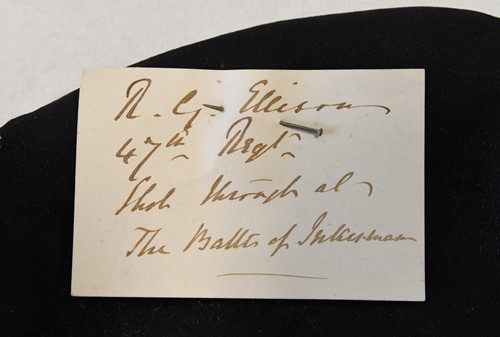 R. G. Ellison
47th Regt
Shot through at
The Battle of Inkerman